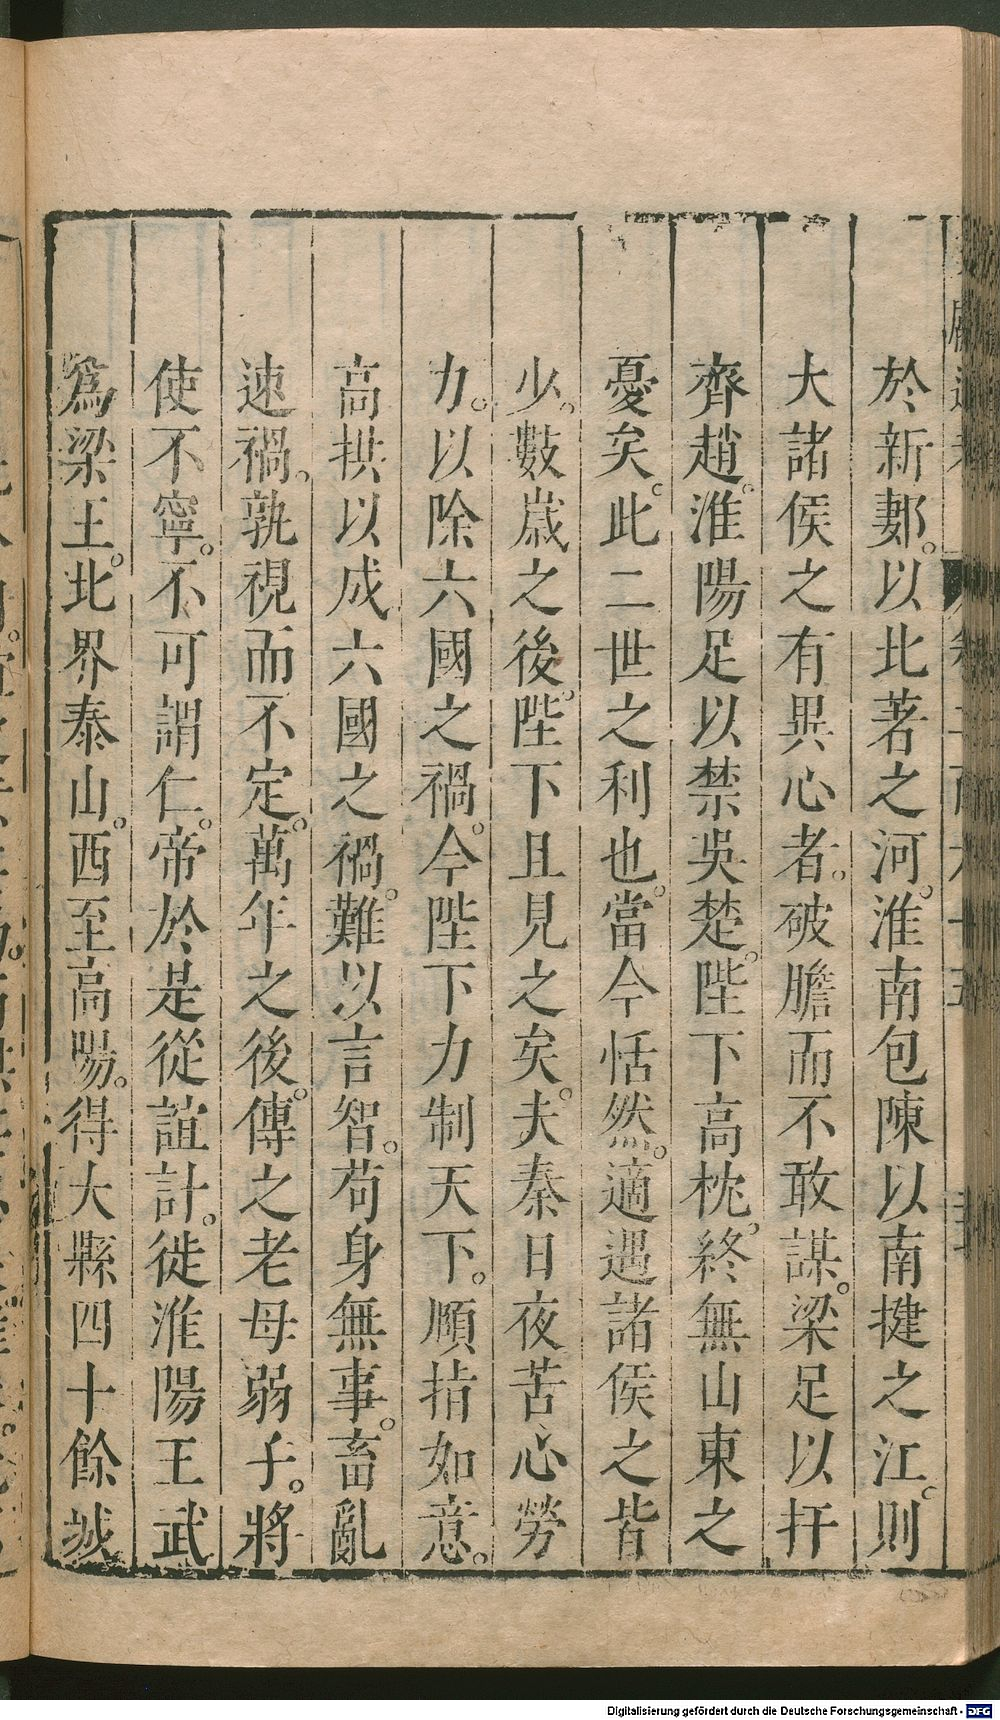 於新郪。以北著之河。淮南包陳以南揵之江。則
大諸侯之有異心者。破膽而不敢謀。梁足以扞
齊趙。淮陽足以禁吳楚。陛下高枕。終無山東之
憂矣。此二世之利也。當今恬然。適遇諸侯之皆
少。數歲之後。陛下且見之矣。夫秦日夜苦心勞
力。以除六國之禍。今陛下力制天下。頤指如意。
高拱以成六國之禍。難以言智。苟身無事。畜亂
速禍。孰視而不定。萬年之後。傳之老母弱子。將
使不寧。不可謂仁。帝於是從誼計。徙淮陽王武
為梁王。北界泰山。西至高陽。得大縣四十餘城
Digitalisierung gefördert durch die Deutsche Forschungsgemeinschaft - DFG